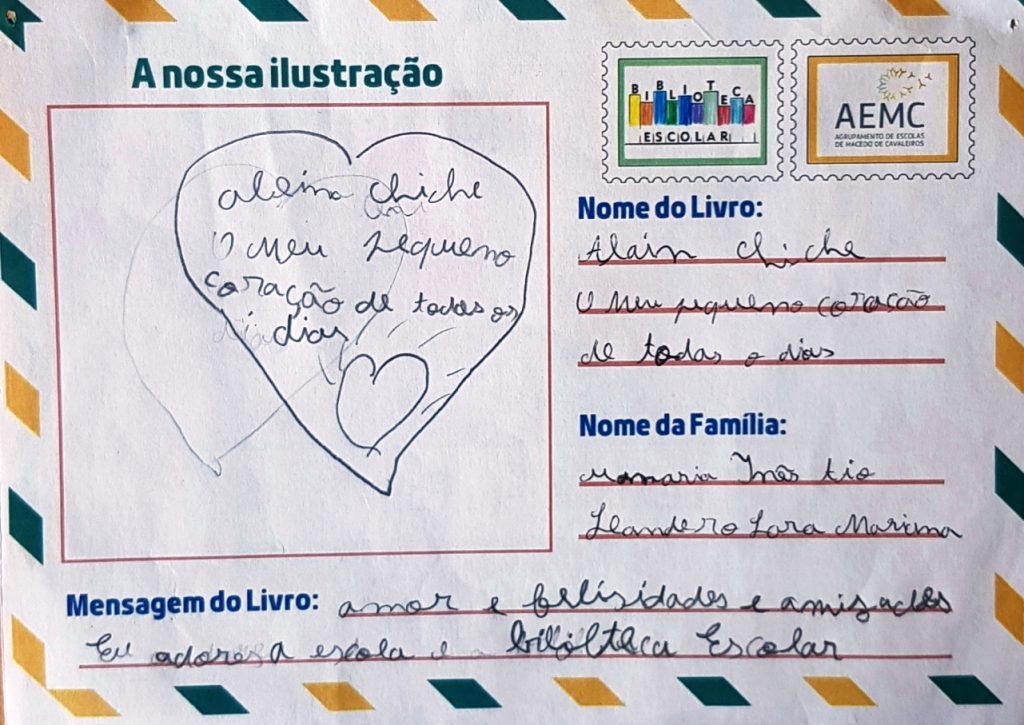 A nossa ilustração
aleino chiche
O meu pequeno
coração de todos os
dias
BIBLIOTECA
ESCOLAR
AEMC
AGRUPAMENTO DE ESCOLAS
DE MACEDO DE CAVALEIROS
Nome do Livro:
Alain chiche
O meu pequeno coração
de todas o dias
Nome da Família:
Inês tio
Leandero Lara Marima
Mensagem do Livro: amor e felisidades e amizades
Eu adores a escola e Escolar